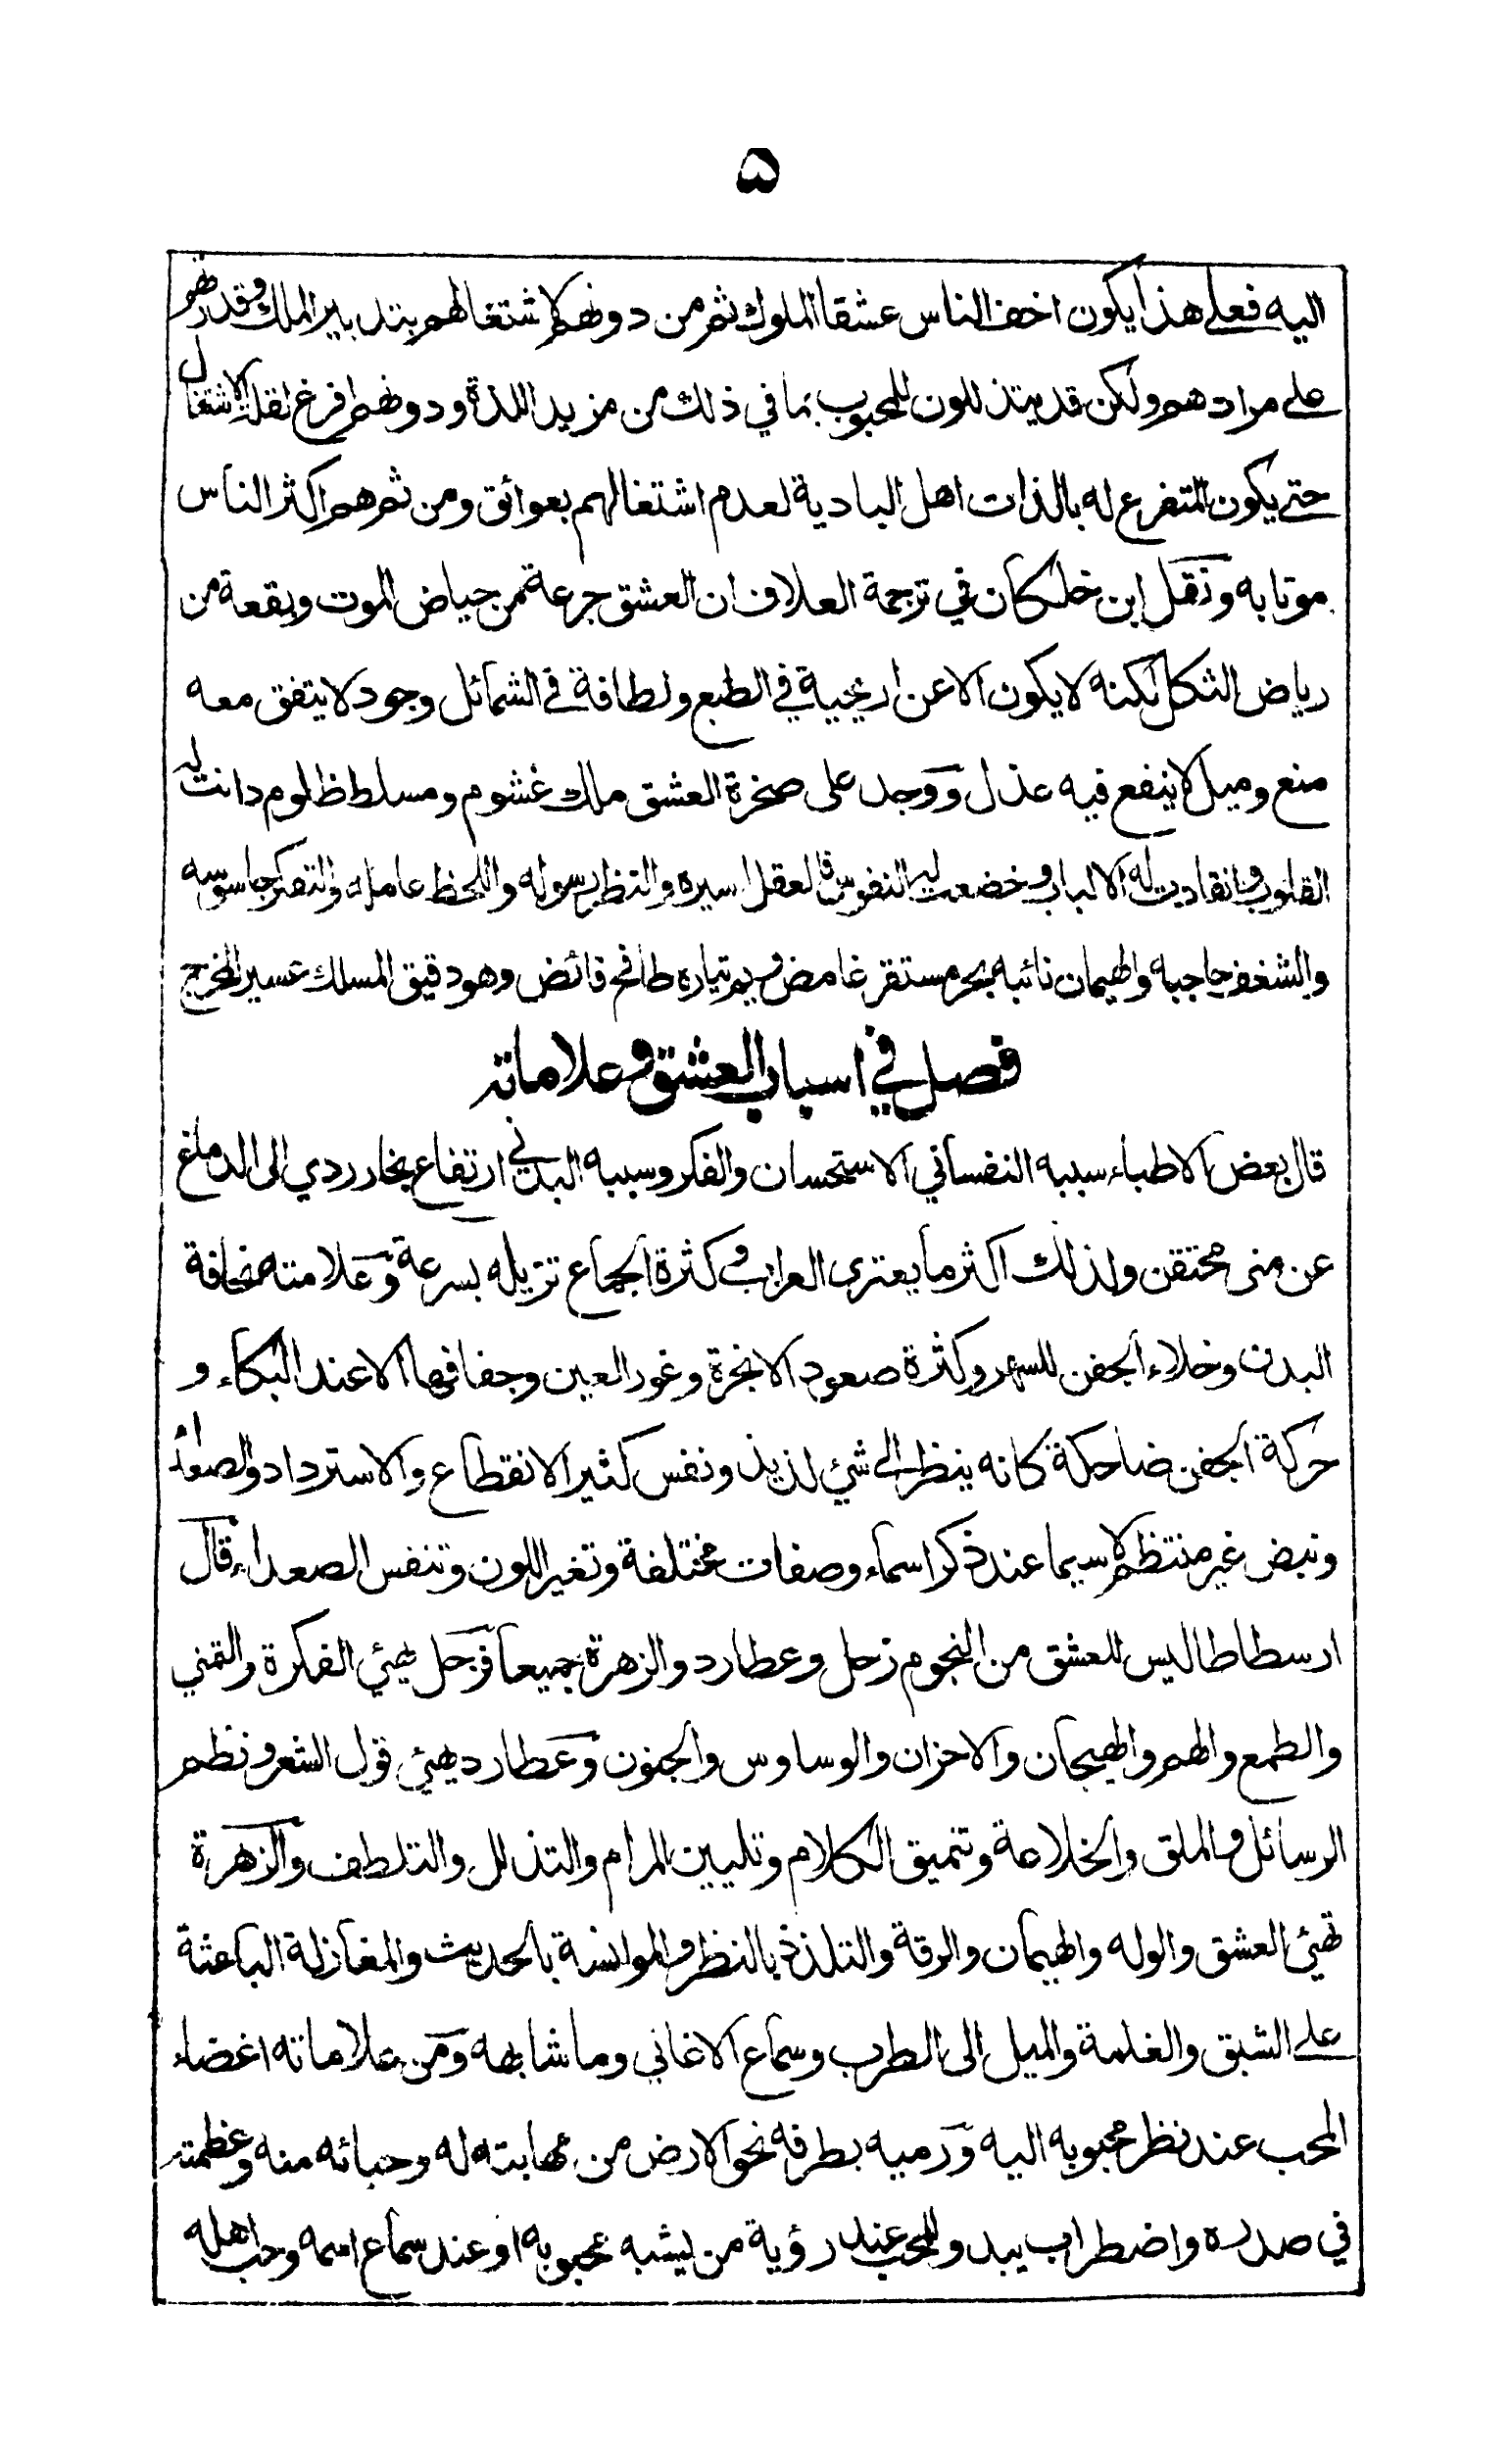 ۵
اليه فعلى هذا يكون اخف الناس عشقا الملوك ثم من دونهم لاشتغالهم بتدبير الملك وقدرتهم
على مرادهم ولكن قد يتذللون للمحبوب بما في ذلك من مزيد اللذة ودونهم افرغ لقلة الاشتغال
حتى يكون المتفرغ له بالذات اهل البادية لعدم اشتغالهم بعوائق ومن ثم هم اكثر الناس
موتا به ونقل ابن خلكان في ترجمة العلاف ان العشق جرعة من حياض الموت وبقعة من
رياض الثكل لكنه لا يكون الا عن اريحية في الطبع ولطافة في الشمائل وجود لا يتفق معه
منع وميل لا ينفع فيه عذل ووجد على صخرة العشق ملك غشوم ومسلط ظلوم دانت له
القلوب وانقادت له الالباب وخضعت له النفوس فالعقل اسيره والنظر رسوله واللحظ عامله والتفكر جاسوسه
والشغف حاجبه والهيمان نائبه بحر مستقر غامض ويم تياره طافح فائض وهو دقيق المسلك عسير المخرج
فصل في اسباب العشق وعلاماته
قال بعض الاطباء سببه النفساني الاستحسان والفكر وسببه البدني ارتفاع بخار ردي الى الدماغ
عن منى محتقن ولذلك اكثر ما يعتري العزاب وكثرة الجماع تزيله بسرعة وعلامته نحافة
البدن وخلاء الجفن للسهر وكثرة صعود الابخرة وغور العين وجفافها الا عند البكاء و
حركة الجفن ضاحكة كانه ينظر الى شئ لذيذ ونفس كثير الانقطاع والاسترداد والصعداء
ونبض غير منتظم لا سيما عند ذكر اسماء وصفات مختلفة وتغير اللون وتنفس الصعداء قال
ارسطاطاليس للعشق من النجوم زحل وعطارد والزهرة جميعا فزحل يهيئ الفكرة والتمني
والطمع والهم والهيجان والاحزان والوساوس والجنون وعطارد يهيئ قول الشعر ونظم
الرسائل والملق والخلاعة وتنميق الكلام وتليين المرام والتذلل والتلطف والزهرة
تهيئ العشق والوله والهيمان والرقة والتلذذ بالنظر والموانسة بالحديث والمغازلة الباعثة
على الشبق والغلمة والميل الى الطرب وسماع الاغاني وما شابهه ومن علاماته اغضاء
المحب عند نظر محبوبه اليه ورميه بطرفه نحو الارض من مهابته له وحيائه منه وعظمته
في صدره واضطراب يبدو للمحب عند رؤية من يشبه محبوبه او عند سماع اسمه وحب اهله